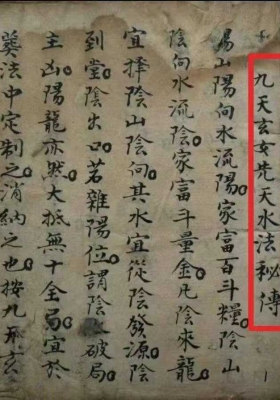 九天玄女先天水法秘傳
陽山陽向水流陽家富百斗糧陰山
陰向水流陰家富斗量金凡陰來龍
宜擇陰山陰向其水宜從陰發源陰
到堂陰出口若雜陽位謂陰陽破局
主凶陽龍亦然大抵無十全局宜於
葬法中定制之消納之也按九天玄